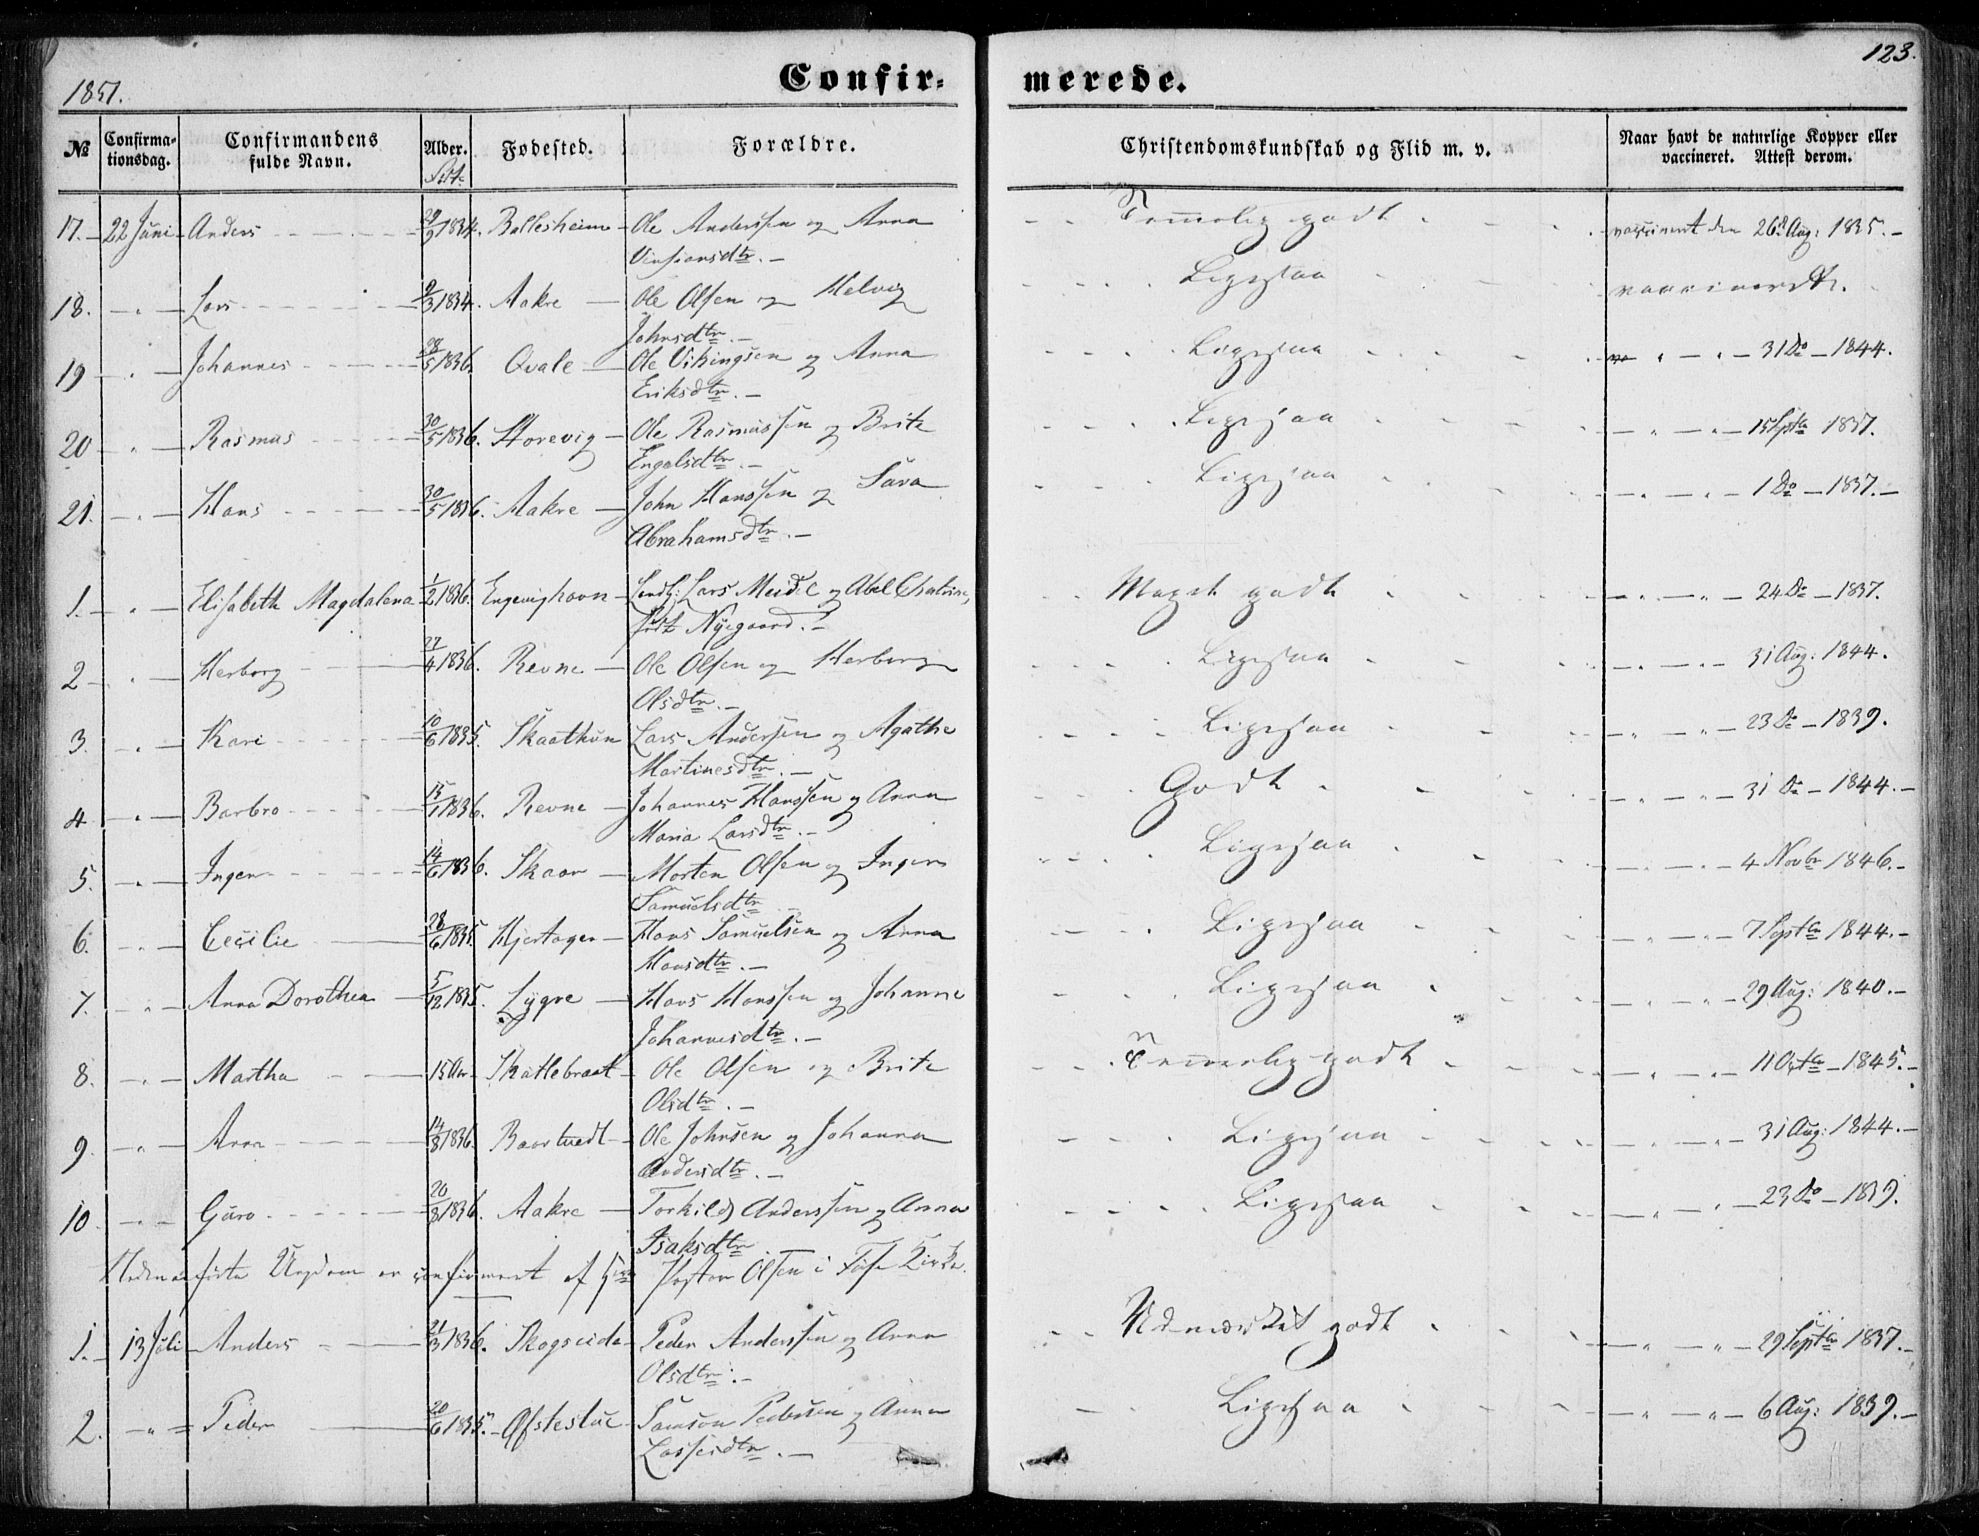 1851.
Confir=
merede.
123.
№
Confirma-
tionsdag.
Confirmandens
fulde Navn.
Alder.
Fødested.
Forældre.
Christendomskundskab og Flid m. v.
Naar havt de naturlige Kopper eller
vaccineret. Attest derom.
17. 22 Juni Anders 29/9 1834. Ballesheim Ole Anderssen og Anna Temmelig godt vaccineret den 26de Aug: 1835.
18. " Lars 9/3 1834. Aakre Ole Olsen og Helvig Ligesaa
Johnsdtr.
19 " Johannes 28/5 1836. Qvale Ole Vikingsen og Anna Ligesaa " " 31 Do 1844.
Eriksdtr.
20 " Rasmus 30/5 1836. Storevig Ole Rasmussen og Brite Ligesaa " " 15 Septbr 1837.
Engelsdtr.
21. " Hans 30/5 1836. Aakre John Hanssen og Sara Ligesaa " " 1 Do 1837.
Abrahamsdtr.
1. " Elisabeth Magdalena 1/2 1836. Engevighavn Lars Meidel og Abel Chatrine, Meget godt " " 24 Do 1837.
født Nyegaard.
2 " Herborg 27/4 1836. Revne Ole Olsen og Herborg Ligesaa " " 31 Aug: 1844.
Olsdtr.
3. " Kari 10/6 1835. Skaathun Lars Andersen og Agathe Ligesaa " " 23 Do 1839.
Martinesdtr.
4 " Barbro 15/1 1836. Revne Johannes Hanssen og Anna Godt " " 31 Do 1844.
Maria Larsdtr.
5. " Inger 14/6 1836. Skaar Morten Olsen og Inger Ligesaa " " 4 Novbr 1846.
Samuelsdtr.
6. " Cecilie 28/6 1835. Hjertager Hans Samuelsen og Anna Ligesaa " " 7 Septbr 1844.
Hansdtr.
7. " Anna Dorothea 5/12 1835. Lygre Hans Hanssen og Johanne Ligesaa " " 29 Aug: 1840.
Johannesdtr.
8. " Martha 15 Aar Skatlebraat Ole Olsen og Brite Temmelig godt " " 11 Octbr 1845.
Olsdtr.
9. " Anna 14/8 1836. Baartvedt Ole Johnsen og Johanna Ligesaa " " 31 Aug: 1844.
Andersdtr.
10. " Guro 20/8 1836. Aakre Torkild Anderssen og Anna Ligesaa " " 23 Do 1839.
Isaksdtr.
Ungdom er confirmeret af Hr. Pastor Olsen i Kirke.
1. 13 Juli Anders 21/3 1836. Skogseide Peder Anderssen og Anna Udmærket godt " " 29 Septbr 1837.
Olsdtr.
2. " Peder 20/6 1835. Øfstestue Samson Pedersen og Anna Ligesaa " " 6 Aug: 1839.
Lassesdtr.